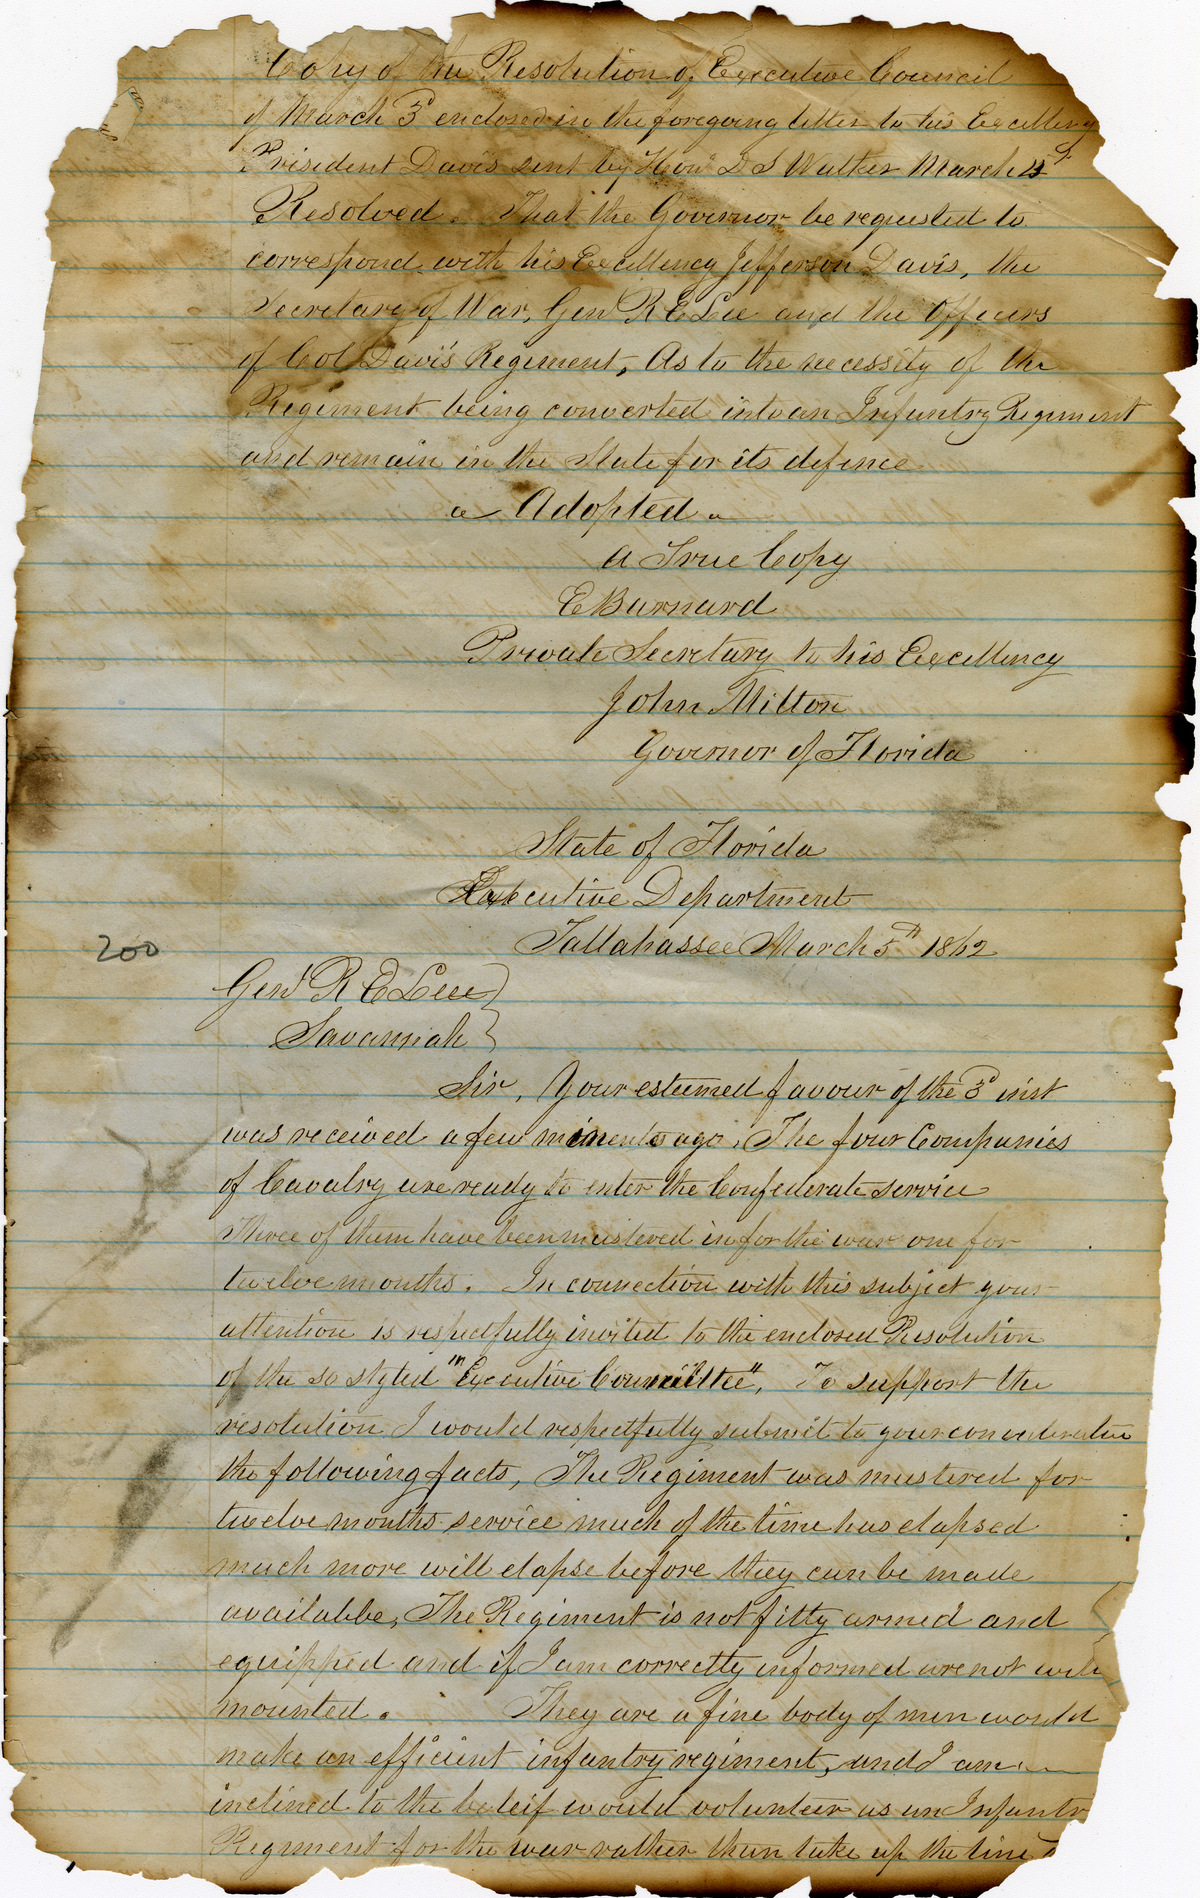 Copy of the Resolution of Executive Council
of March 3d enclosed in the foregoing letter to his Excellency
President Davis sent by Hon D S Walker March
Resolved. That the Governor be requested to
correspond with his Excellency Jefferson Davis, the
Secretary of War, Genl R E Lee and the Officers
of Col Davis Regiment, As to the necessity of the
Regiment being converted into an Infantry Regiment
and remain in the State for its defence
Adopted
A True Copy
E Barnard
Private Secretary to his Excellency
John Milton
Governor of Florida
State of Florida
Executive Department
Tallahassee March 5th 1862
200
Genl R E Lee
Savannah
Sir, Your esteemed favour of the 3d inst
was received a few minents ago. The four Companies
of Cavalry are ready to enter the Confederate service
Three of them have been mustered in for the war one for
twelve months. In connection with this subject your
attention is respectfully invited to the enclosed Resolution
of the so styled "Executive Committee", To support the
resolution I would respectfully submit to your consideration
the following facts, The Regiment was mustered for
twelve months service much of the time has elapsed
much more will elapse before they can be made
availabbe, The Regiment is not fitty armed and
equipped and if I am correctly informed are not well
mounted. They are a fine body of men would
make an efficient infantry regiment, and I am
inclined to the beleif would volunteer as an Infantr
Regiment for the war rather than take up the time